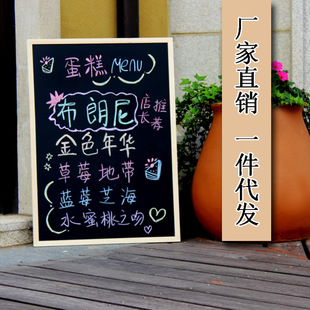 蛋糕 Menu
布朗尼 店长推荐
金色年华
草莓地带
蓝莓芝海
水蜜桃之吻
厂家直销 一件代发